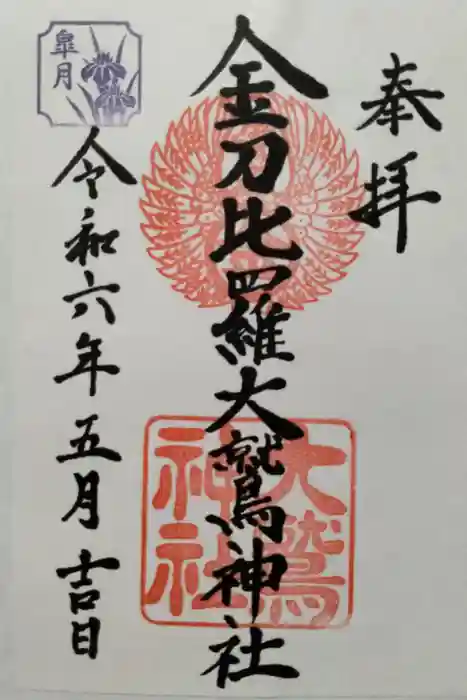 奉拝
金刀比羅大鷲神社
大鷲
神社
令和六年五月吉日
皐月